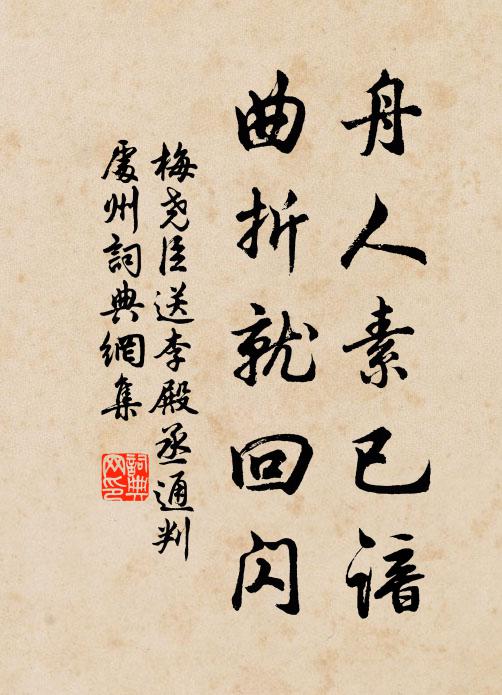 舟人素已谙
曲折就回闪
梅尧臣送李殿丞通判
處州詞典網集
詞典
网印